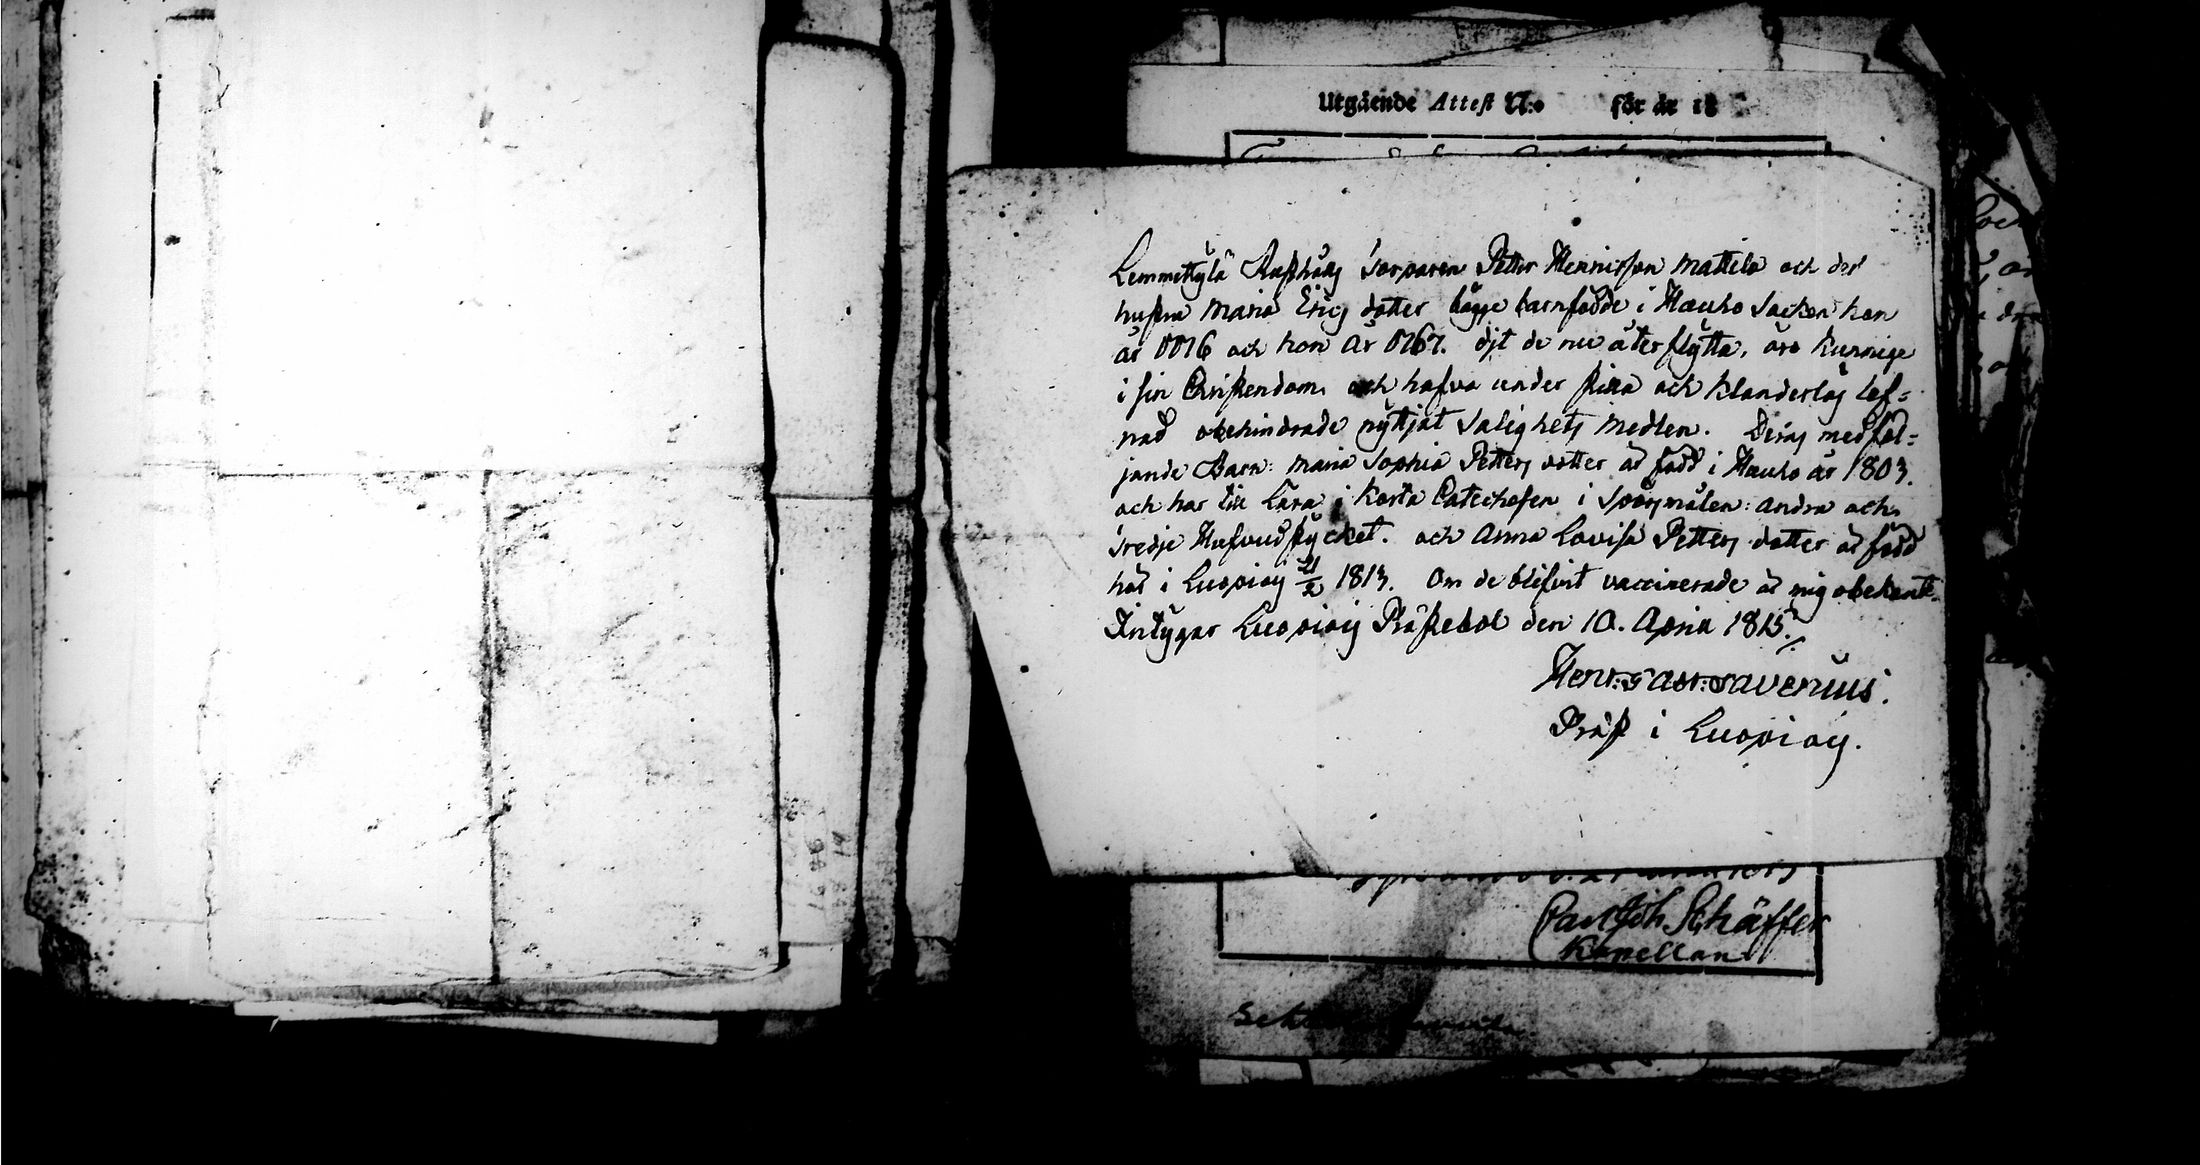 Utgående Attest N:o för år 18
Lemmettylä Rusthålls Torparen Petter Henricsson Mattila och des
hustru Maria Erics dotter bägge barnfödde i Hauho Socken han
år 1776 och hon år 1767. dit de nu återflytta, äro kunnige
i sin Christendom och hafva under stilla och klanderlös lef-
nad obehindrade nyttjat Salighets medlen. Deras medföl-
jande Barn: Maria Sophia Petters dotter är född i Hauho år 1803.
och har till lära i korta Catechesen i Spörsmålen: andra och
tredje Hufvudstycket. och Anna Lovisa Petters dotter är född
här i Luopiois 21/2 1813. Om de blifvit vaccinerade är mig obekant.
Intygar Luopiois Prästebol den 10. April 1815.
Henr: Gabr: Gavenius.
Präst i Luopiois.
Carl Joh Schäffer
Kapellan